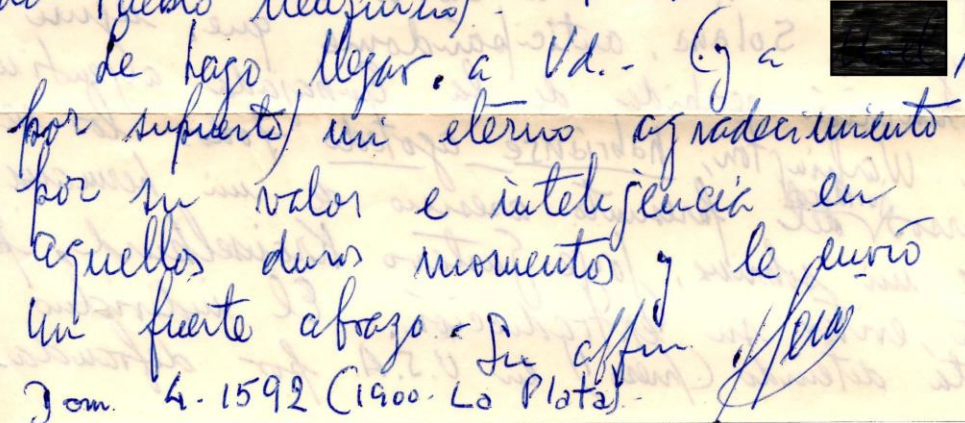 Pueblo Neuquino).
Le hago llegar. a Vd.- (y a
por supuesto) mi eterno agradecimiento
por su valor e inteligencia en
aquellos duros momentos y le envio
un fuerte abrazo - Su affmo
Dom. 4-1592 (1900. La Plata)-